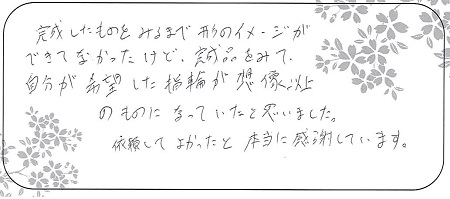 完成したものをみるまで形のイメージが
できてなかったけど、完成品をみて、
自分が希望した指輪が想像以上
のものになっていたと思いました。
依頼してよかったと本当に感謝しています。